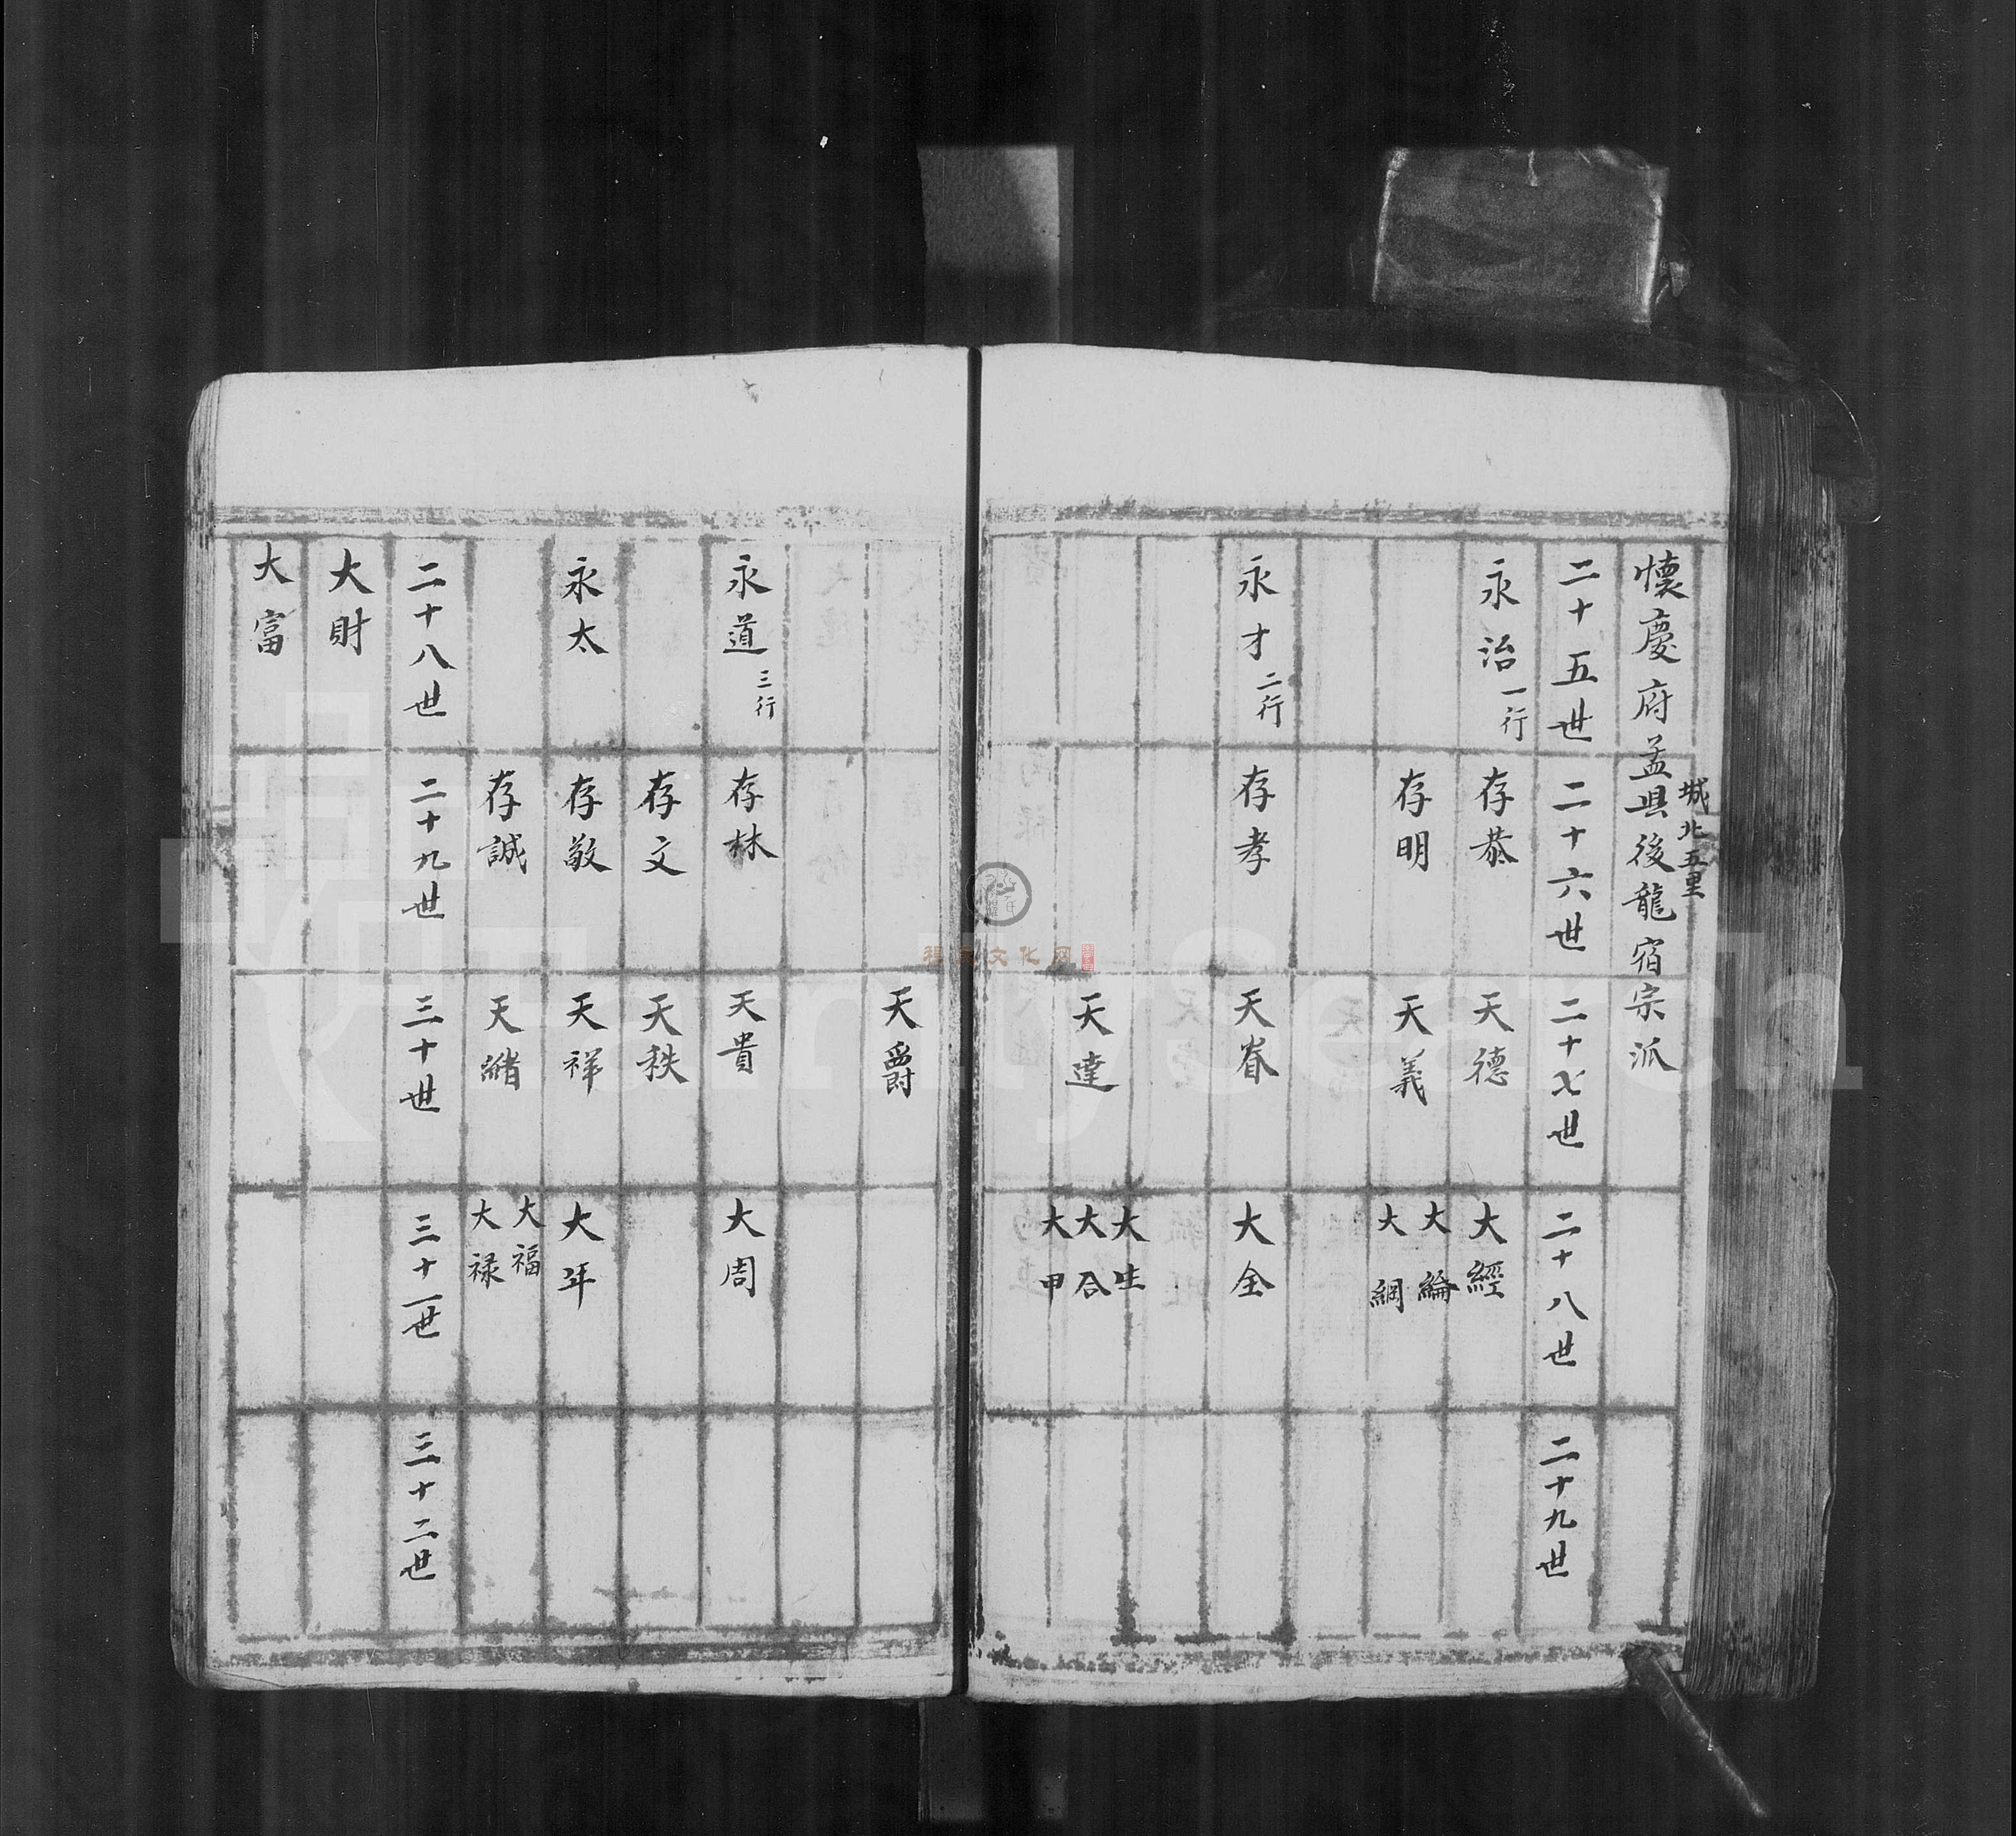 懷慶府孟㒷後龍宿宗派
城北五里
二十五世
二十六世
二十七世
二十八世
二十九世
永治一行
存恭
天德
大經
存明
天義
大綸
大綱
永才二行
存孝
天眷
大全
天達
大生
大合
大甲
天爵
永道三行
存林
天貴
大周
存文
天秩
永太
存敬
天祥
大年
存誠
天緒
大福
大禄
二十八世
二十九世
三十世
三十一世
三十二世
大財
大富
程氏文化网
FamilySearch